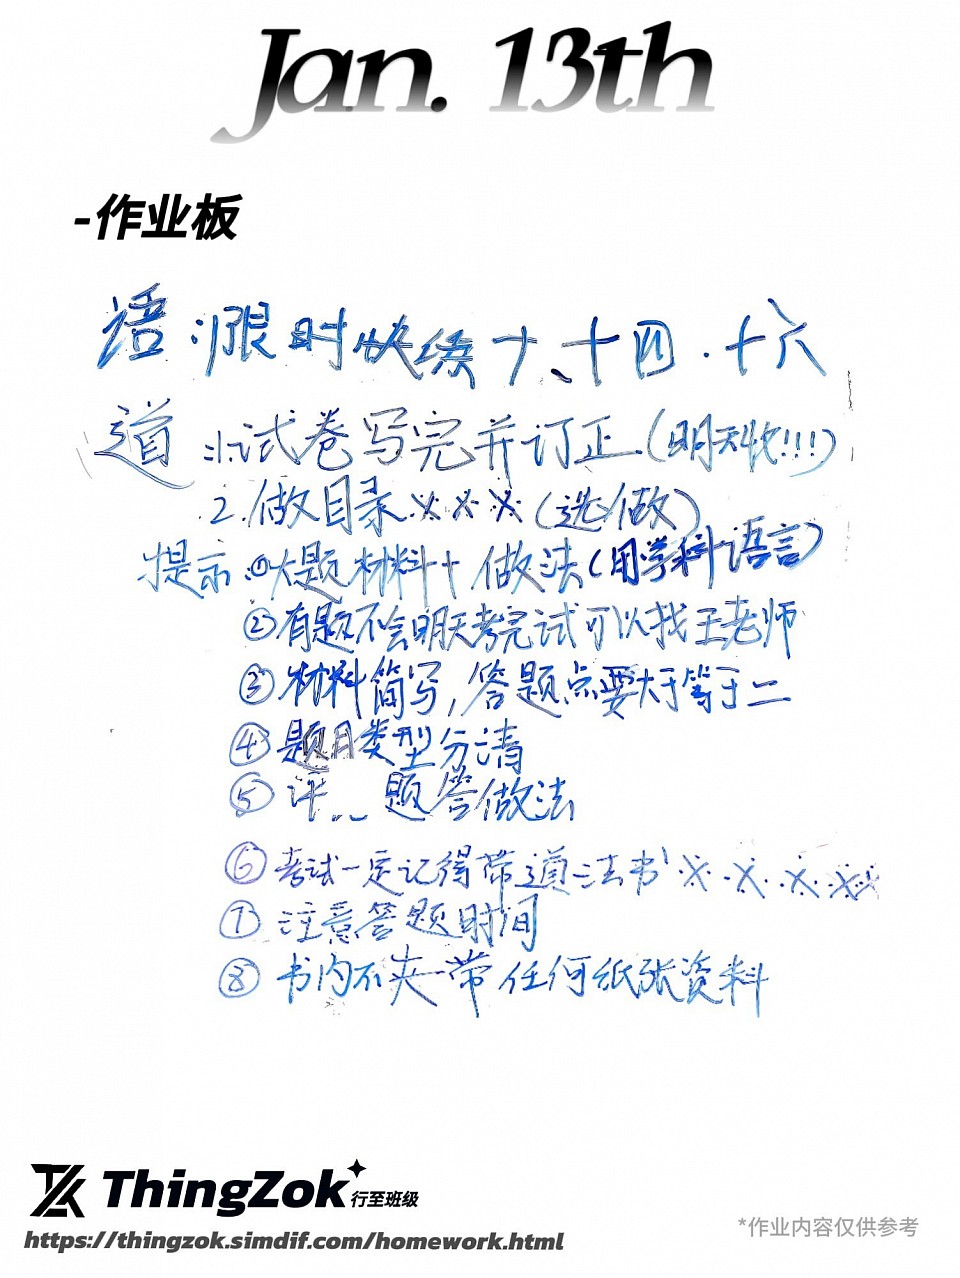 Jan. 13th
-作业板
语:限时快练十、十四、十六
道:1.试卷写完并订正.(明天收!!!)
2.做目录※※※(选做)
提示:①大题材料+做法(用学科语言)
②有题不会明天考完试可以找王老师
③材料简写,答题点要大于等于二
④题目类型分清
⑤评 题答做法
⑥考试一定记得带道法书!※※※※※
⑦注意答题时间
⑧书内不夹带任何纸张资料
ThingZok 行至班级
https://thingzok.simdif.com/homework.html
*作业内容仅供参考